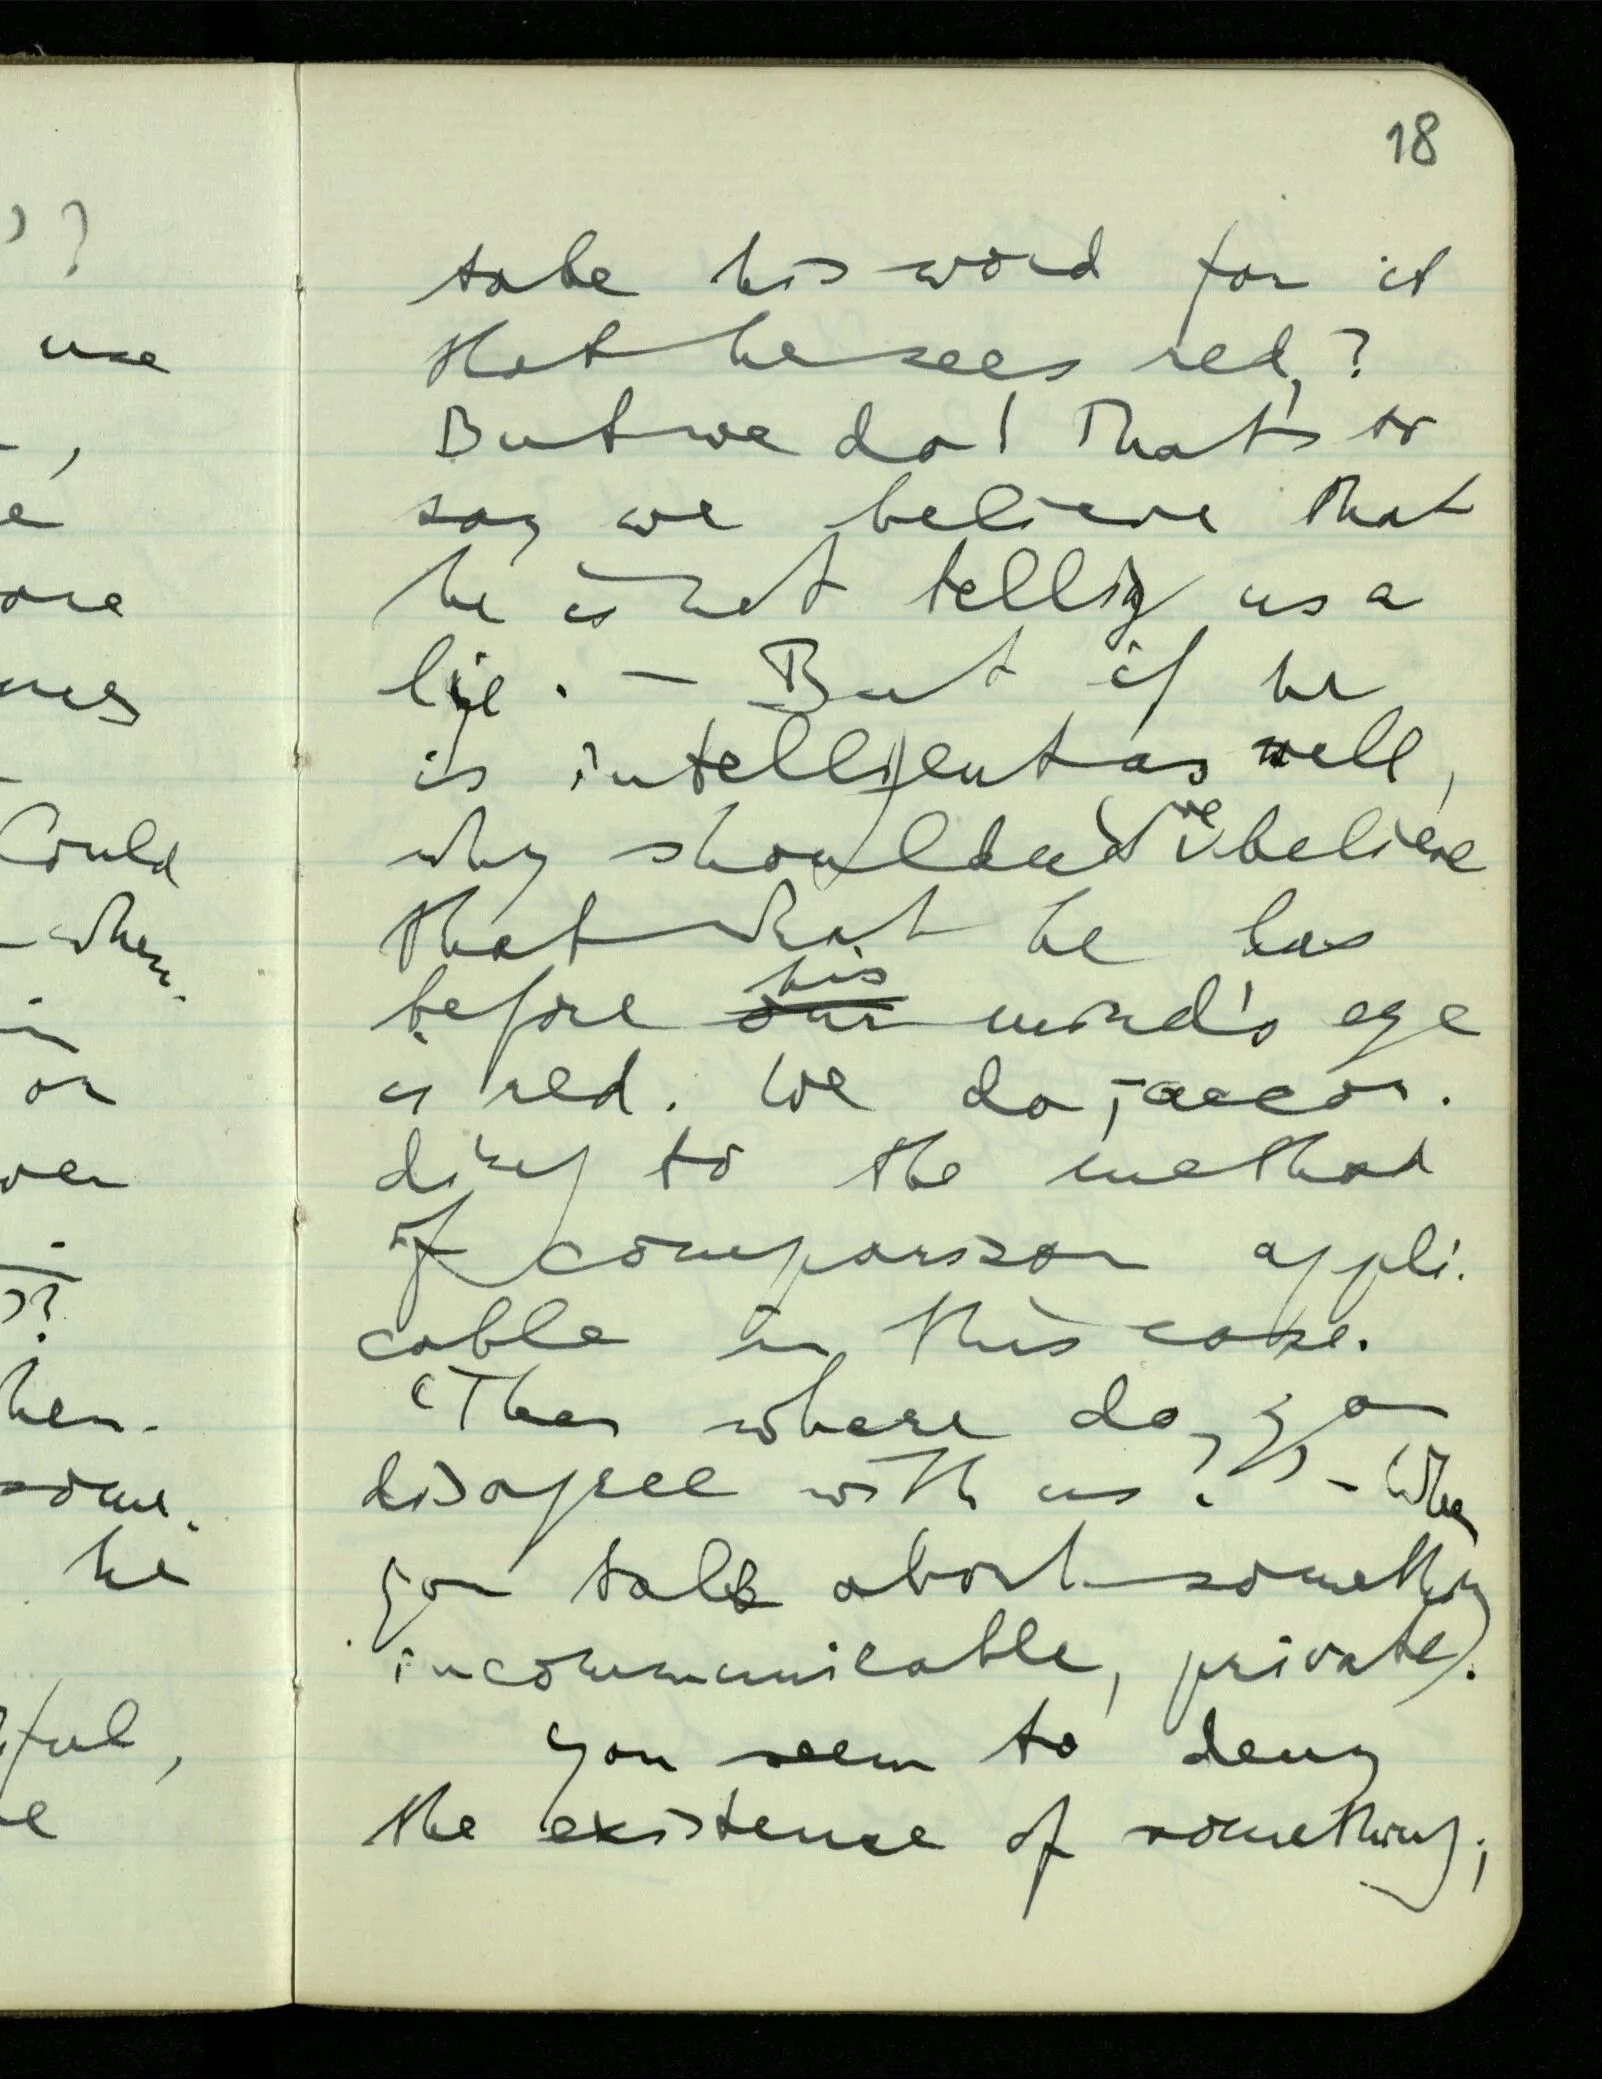 18
)?
use
,
e
ore
Could
when.
in
or
ver
)?
hen.
some.
he
ful,
e
take his word for it
that he sees red,?
But we do! That's to
say we believe that
he is not telling us a
lie. – But if he
is intelligent as well,
why shouldn't we believe
that what he has
before our his mind's eye
is red. We do, accor-
ding to the method
of comparison appli-
cable in this case.
"Then where do you
disagree with us?" – When
you talk about something
incommunicable, private.
You seem to deny
the existence of something;